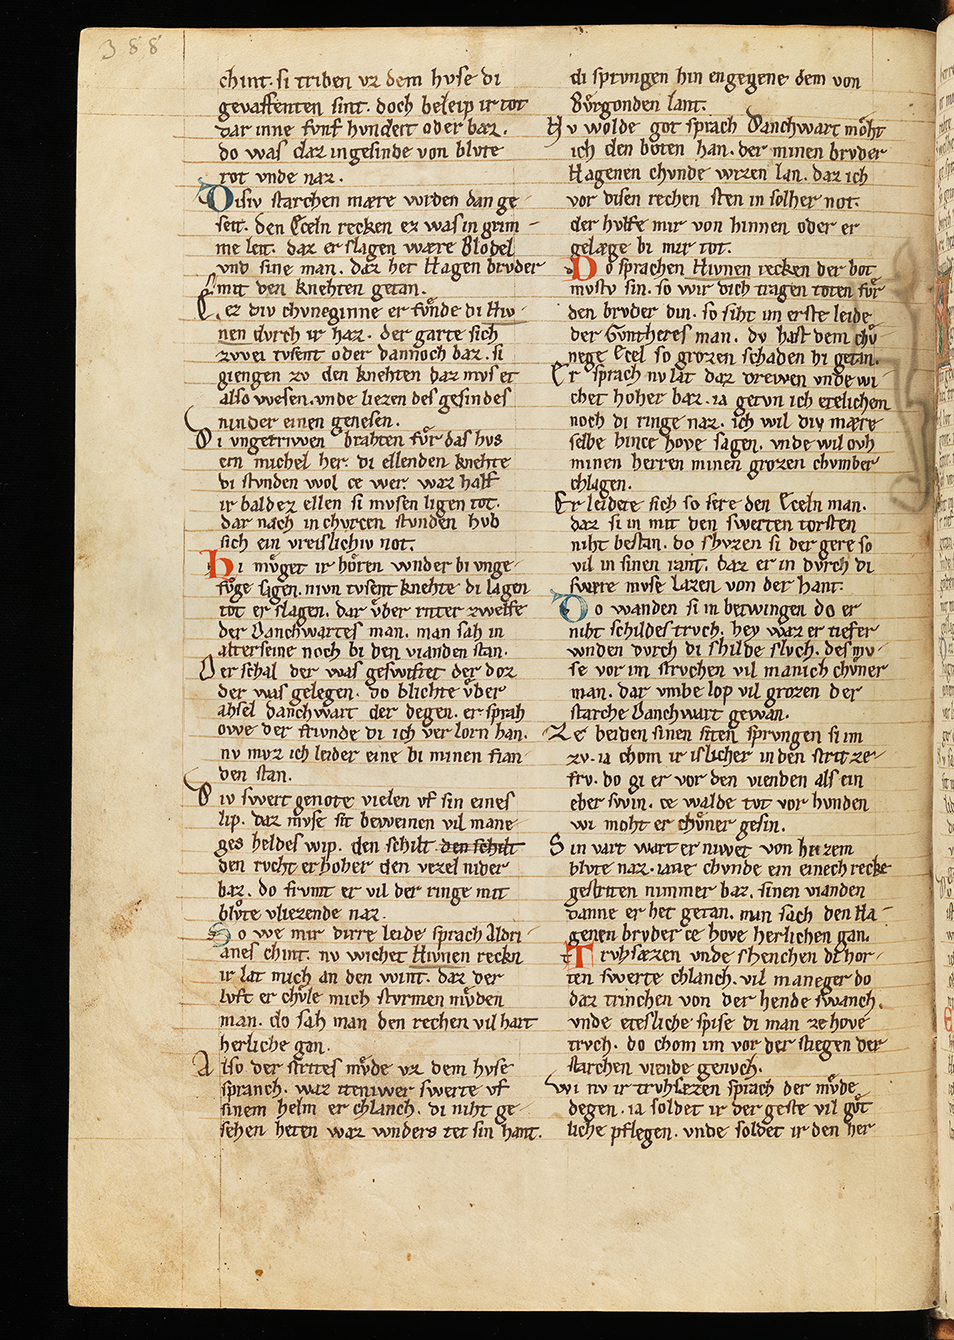 388
chint. si triben vz dem hvse di
gewaffenten sint. doch beleip ir tot
dar inne fvnf hvndert oder baz.
do was daz ingesinde von blvte
rot vnde naz.
Disiv starchen mære wrden dan ge
seit. den Eceln recken ez was in grim
me leit. daz er slagen wære Blodel
vnd sine man. daz het Hagen brvder
mit den knehten getan.
Ez div chvneginne er fvnde di Hiv
nen dvrch ir haz. der garte sich
zwei tvsent oder dannoch baz. si
giengen zv den knehten daz mvs et
also wesen. vnde liezen des gesindes
ninder einen genesen.
Di vngetriwen brahten fvͦr das hvs
ein michel her. di ellenden knehte
di stvnden wol ce wer. waz half
ir baldez ellen si mvsen ligen tot.
dar nach in chvrcen stvnden hvb
sich ein vreislichiv not.
Hi mvͦget ir hoͤren wnder bi vnge
fvͦge sagen. nivn tvsent knehte di lagen
tot er slagen. dar vͦber ritter zwelfe
der Danchwartes man. man sah in
alters eine noch bi den vianden stan.
Der schal der was geswiftet der doz
der was gelegen. do blichte vͦber
ahsel danchwart der degen. er sprah
owe der frivnde di ich ver lorn han.
nv mvz ich leider eine bi minen fian
den stan.
Div swert genote vielen vf sin eines
lip. daz mvse sit beweinen vil mane
ges heldes wip. den schilt den schilt
den rvcht er hoher den vezel nider
baz. do frvmt er vil der ringe mit
blvͦte vliezende naz.
So we mir dirre leide sprach Aldri
anes chint. nv wichet Hivnen reckn
ir lat mich an den wint. daz der
lvft er chvͦle mich stvrmen mvͦden
man. do sah man den rechen vil hart
herliche gan.
Also der strites mvͦde vz dem hvse
spranch. waz iteniwer swerte vf
sinem helm er chlanch. di niht ge
sehen heten waz wnders tet sin hant.
di sprvngen hin engegene dem von
Bvͦrgonden lant.
Nv wolde got sprach Danchwart moͤht
ich den boten han. der minen brvder
Hagenen chvnde wizen lan. daz ich
vor disen rechen sten in solher not.
der hvlfe mir von hinnen oder er
gelæge bi mir tot.
Do sprachen Hivnen recken der bot
mvstv sin. so wir dich tragen toten fvͦr
den brvder din. so siht im erste leide
der Gvntheres man. dv hast dem chv
nege Ecel so grozen schaden hi getan.
Er sprach nv lat daz drewen vnde wi
chet hoher baz. ia getvn ich etelichem
noch di ringe naz. ich wil div mære
selbe hince hove sagen. vnde wil ovh
minen herren minen grozen chvmber
chlagen.
Er leidete sich so sere den Eceln man.
daz si in mit den swerten torsten
niht bestan. do shvzen si der gere so
vil in sinen rant. daz er in dvrch di
swære mvse lazen von der hant.
Do wanden si in betwingen do er
niht schildes trvch. hey waz er tiefer
wnden dvrch di shilde slvch. des mv
se vor im strvchen vil manich chvͦner
man. dar vmbe lop vil grozen der
starche Danchwart gewan.
Ze beiden sinen siten sprvngen si im
zv. ia chom ir islicher in den strit ze
frv. do gi er vor den vienden als ein
eber swin. ce walde tvt vor hvnden
wi moht er chvͦner gesin.
Sin vart wart erniwet von heizem
blvte naz. iane chvnde ein einech recke
gestriten nimmer baz. sinen vianden
danne er het getan. nun sach den Ha
genen brvder ce hove herlichen gan.
Trvhsæzen vnde shenchen di hor
ten swerte chlanch. vil maneger do
daz trinchen von der hende swanch.
vnde etesliche spise di man ze hove
trvch. do chom im vor der stiegen der
starchen viende genvch.
Wi nv ir trvhsæzen sprach der mvͦde
degen. ia soldet ir der geste vil gvͦt
liche pflegen. vnde soldet ir den her